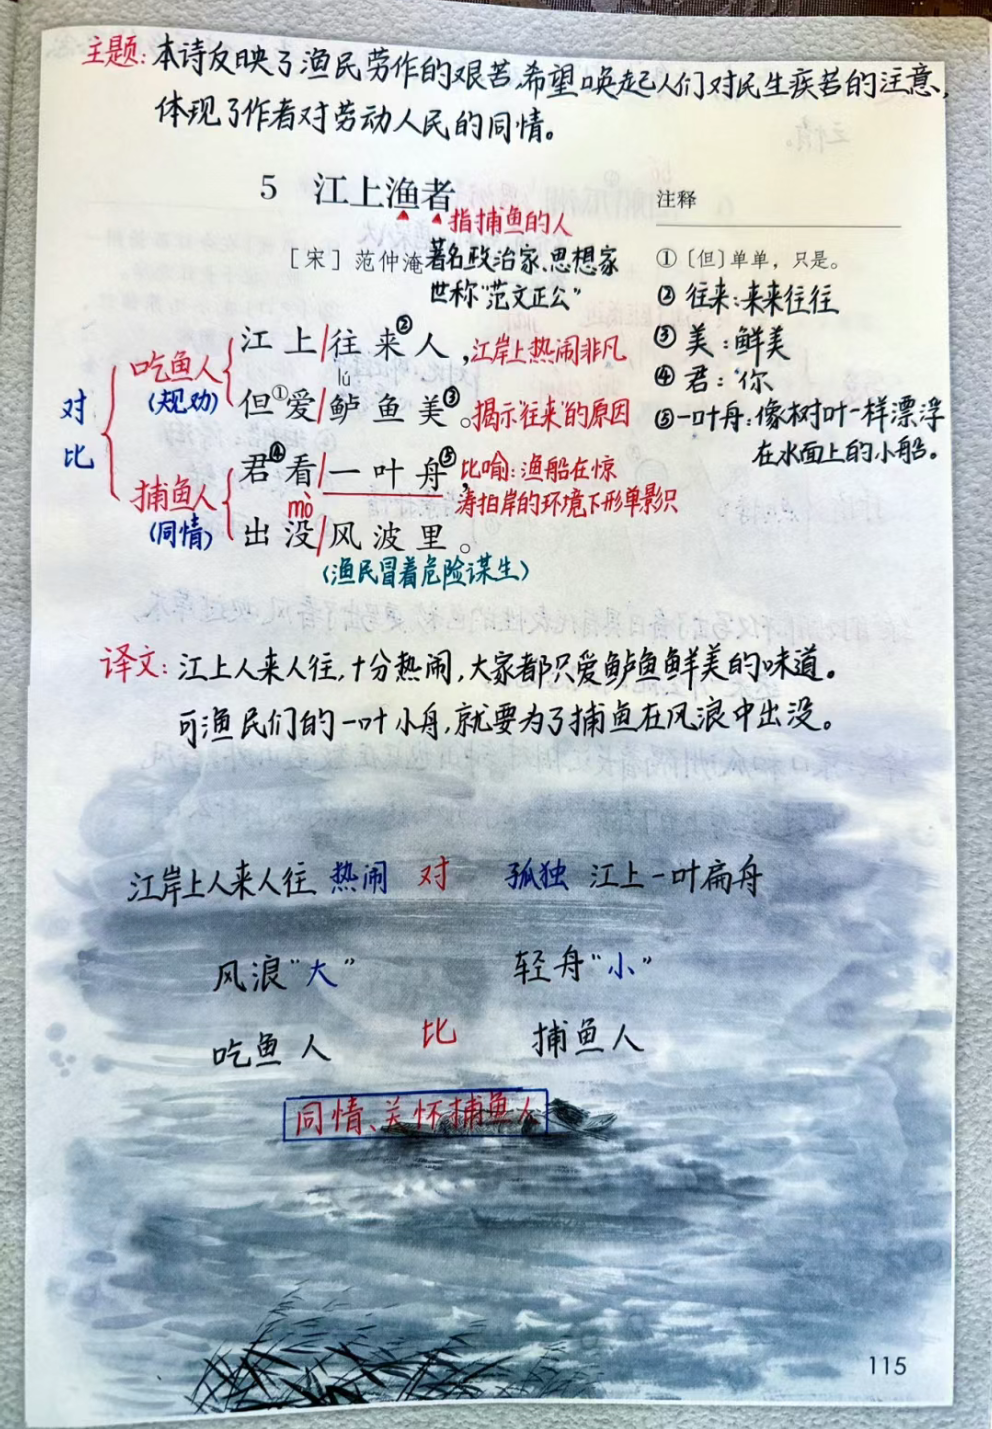 主题:本诗反映了渔民劳作的艰苦,希望唤起人们对民生疾苦的注意,
体现了作者对劳动人民的同情。
5 江上渔者
指捕鱼的人
[宋] 范仲淹 著名政治家、思想家
世称“范文正公”
注释
①〔但〕单单，只是。
② 往来:来来往往
③ 美:鲜美
④ 君:你
⑤ 一叶舟:像树叶一样漂浮
在水面上的小船。
对比
吃鱼人
(规劝)
江上/往来②人，江岸上热闹非凡
lú
但①爱/鲈鱼美③。揭示“往来”的原因
捕鱼人
(同情)
君④看/一叶舟⑤，比喻:渔船在惊
涛拍岸的环境下形单影只
mò
出没/风波里。
(渔民冒着危险谋生)
译文:江上人来人往,十分热闹,大家都只爱鲈鱼鲜美的味道。
可渔民们的一叶小舟,就要为了捕鱼在风浪中出没。
江岸上人来人往 热闹 对 孤独 江上一叶扁舟
风浪“大” 轻舟“小”
吃鱼人 比 捕鱼人
同情、关怀捕鱼人
115